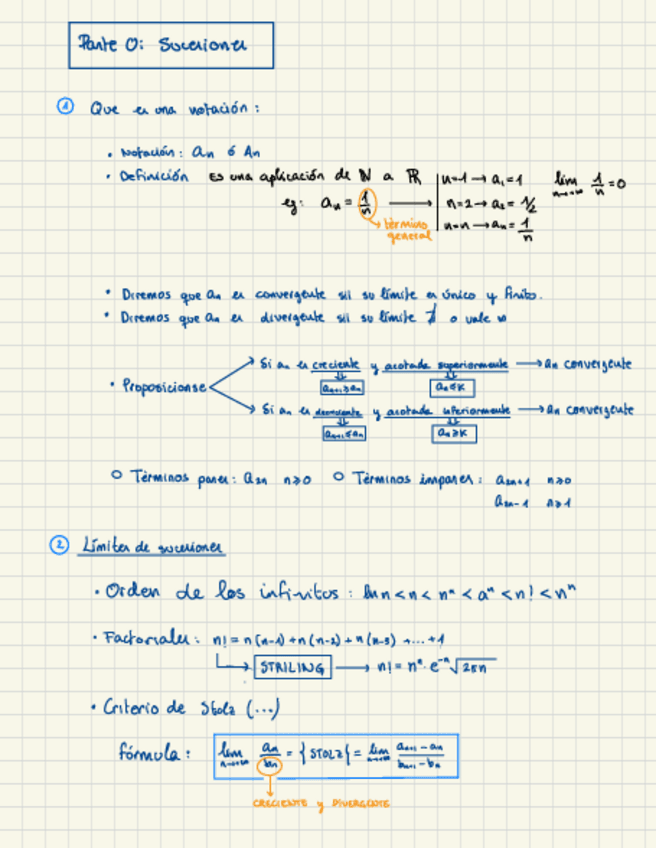 Parte 0: Sucesiones
① Que es una notación:
• Notación: an ó An
• Definición Es una aplicación de ℕ a ℝ
eg: an = 1/n → n=1 → a1 = 1
n=2 → a2 = 1/2
n=n → an = 1/n
lim n→∞ 1/n = 0
término general
• Diremos que an es convergente sii su límite es único y finito.
• Diremos que an es divergente sii su límite ∄ o vale ∞
• Proposiciones
Si an es creciente y acotada superiormente → an convergente
an+1 ≥ an an ≤ K
Si an es decreciente y acotada inferiormente → an convergente
an+1 ≤ an an ≥ K
○ Términos pares: a2n n≥0 ○ Términos impares: a2n+1 n≥0
a2n-1 n≥1
② Límites de sucesiones
• Orden de los infinitos: ln n < n < nᵃ < aⁿ < n! < nⁿ
• Factoriales: n! = n(n-1)+n(n-2)+n(n-3) +...+1
STRILING → n! = nⁿ · e⁻ⁿ √2πn
• Criterio de Stolz (...)
fórmula: lim n→∞ an/bn = {STOLZ} = lim n→∞ (an+1 - an)/(bn+1 - bn)
CRECIENTE y DIVERGENTE